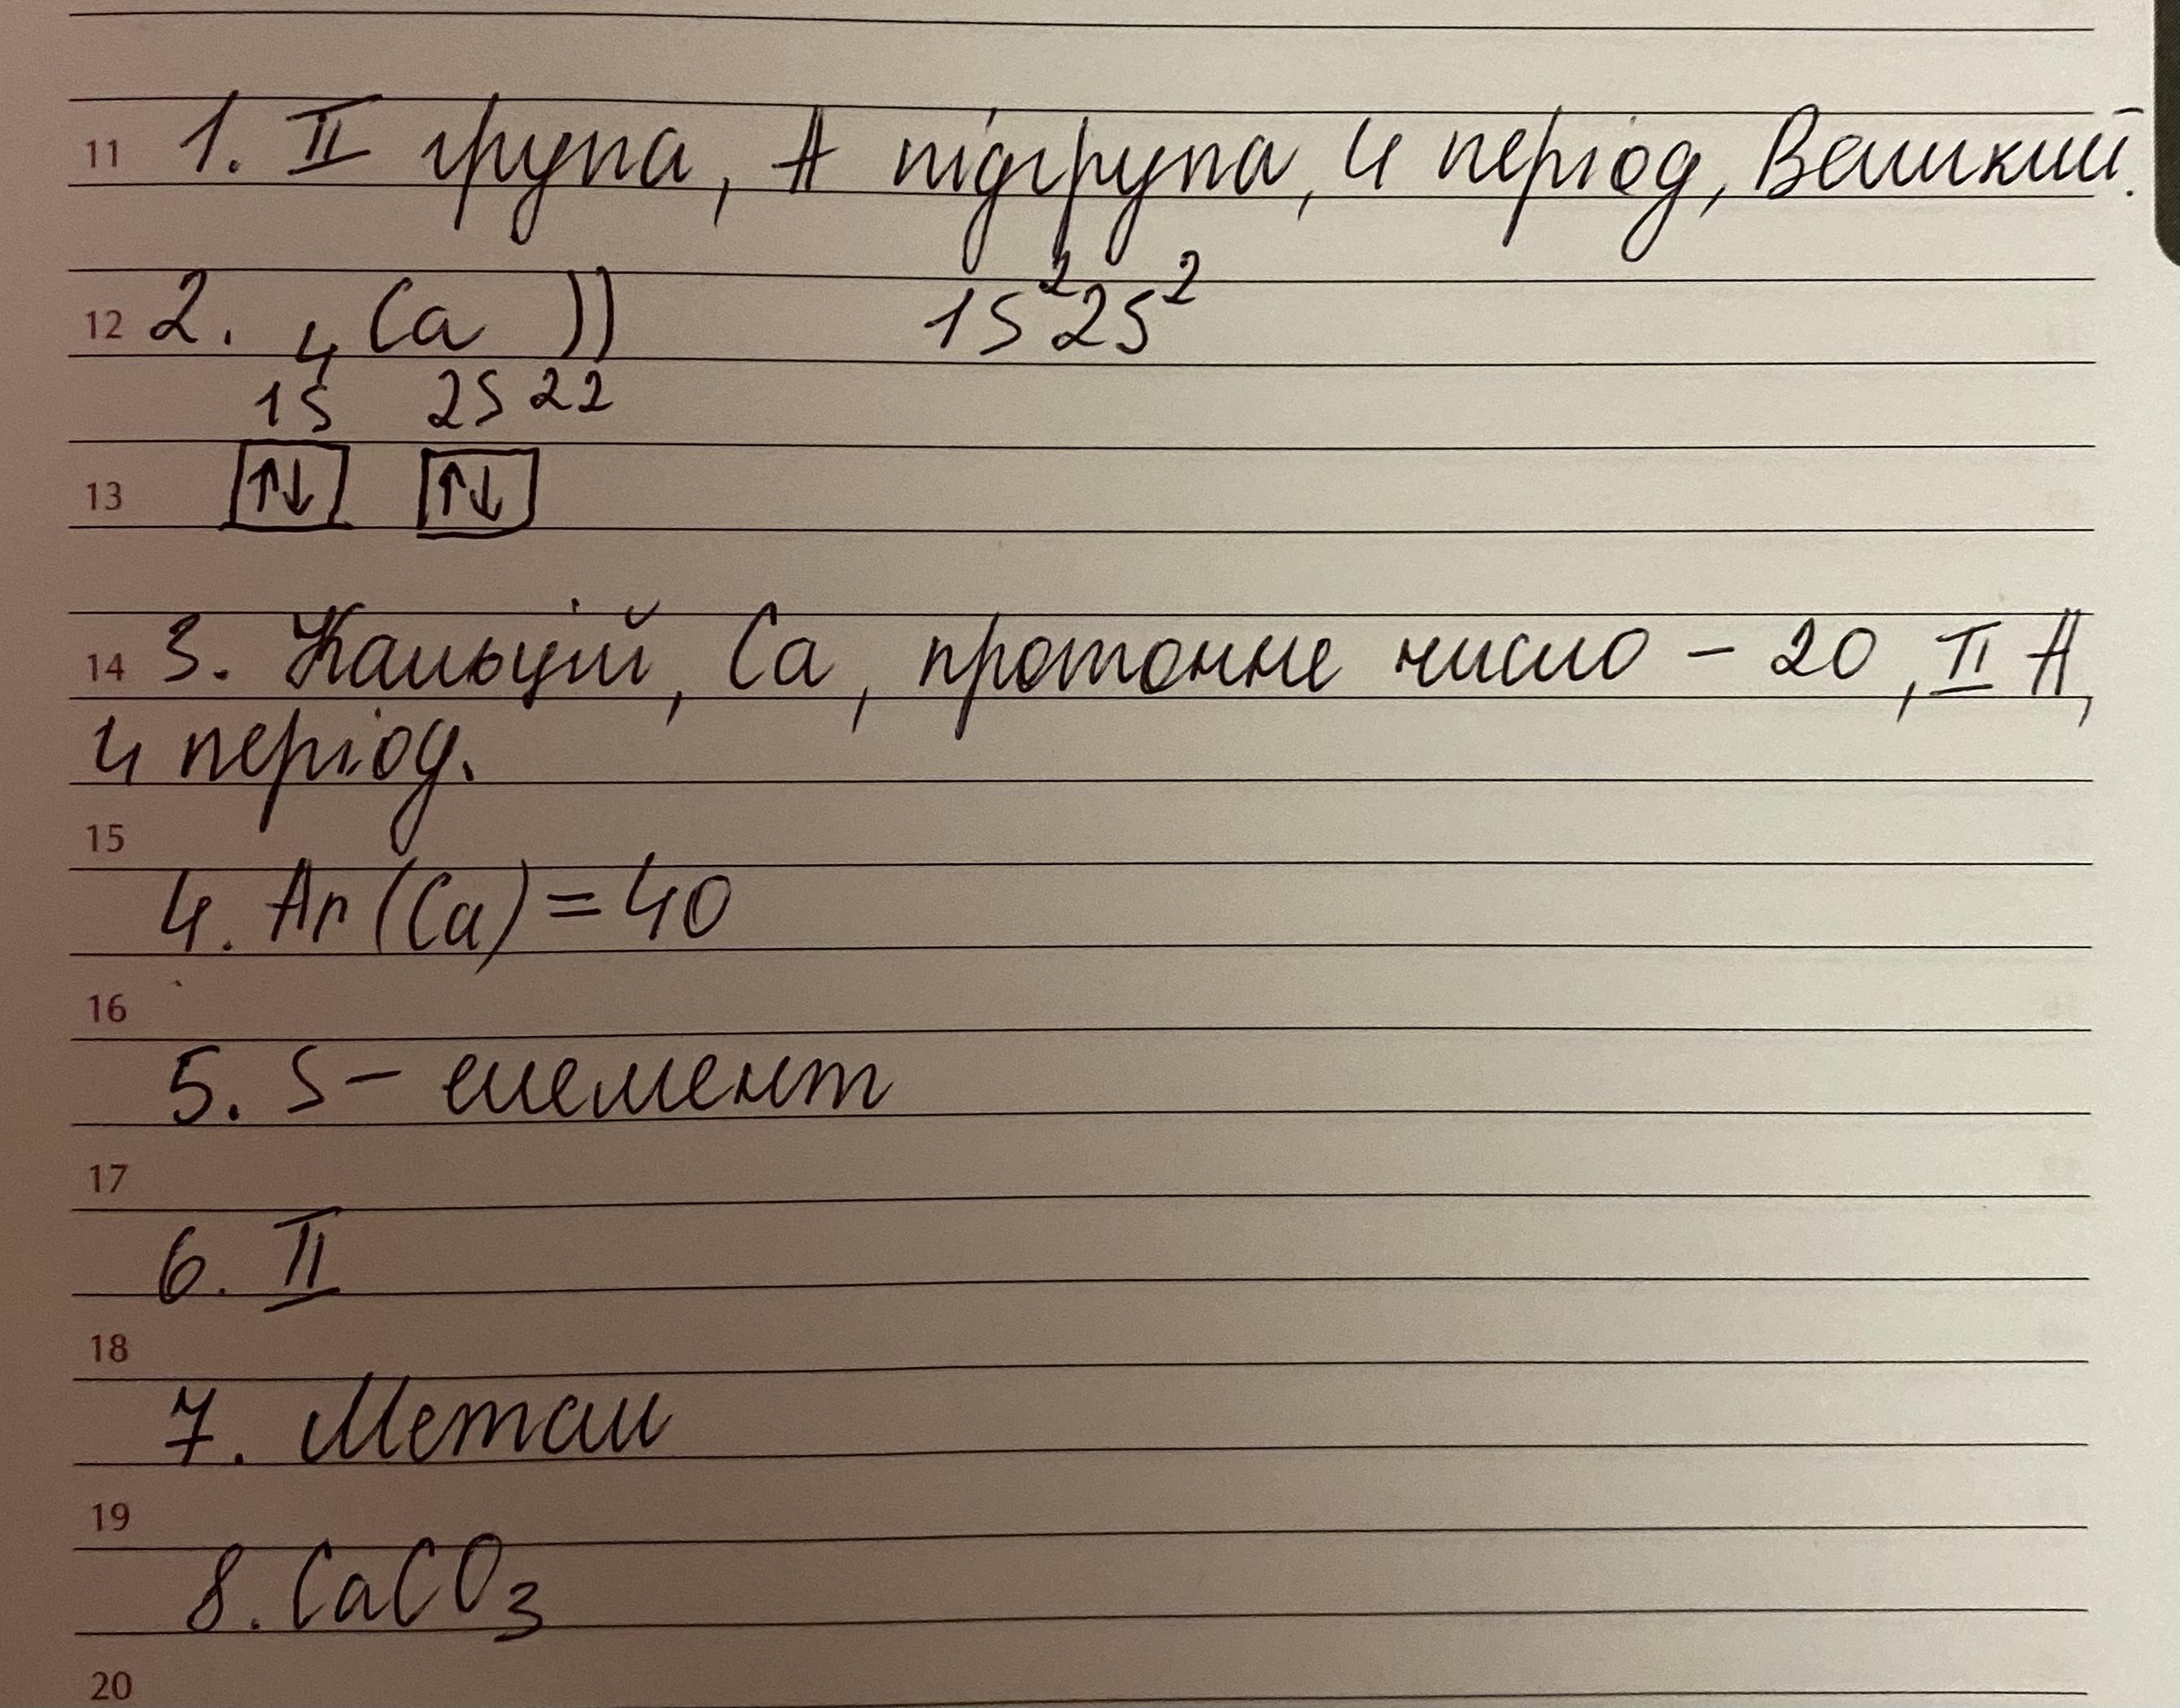 11 1. II група, А підгрупа, 4 період, Великий.
12 2. ₄Ca )) 1S²2S²
1S 2S 2 2
13 ↑↓ ↑↓
14 3. Кальцій, Ca, протонне число – 20, II А,
4 період.
15
4. Ar (Ca) = 40
16
5. S – елемент
17
6. II
18
7. Метал
19
8. CaCO₃
20